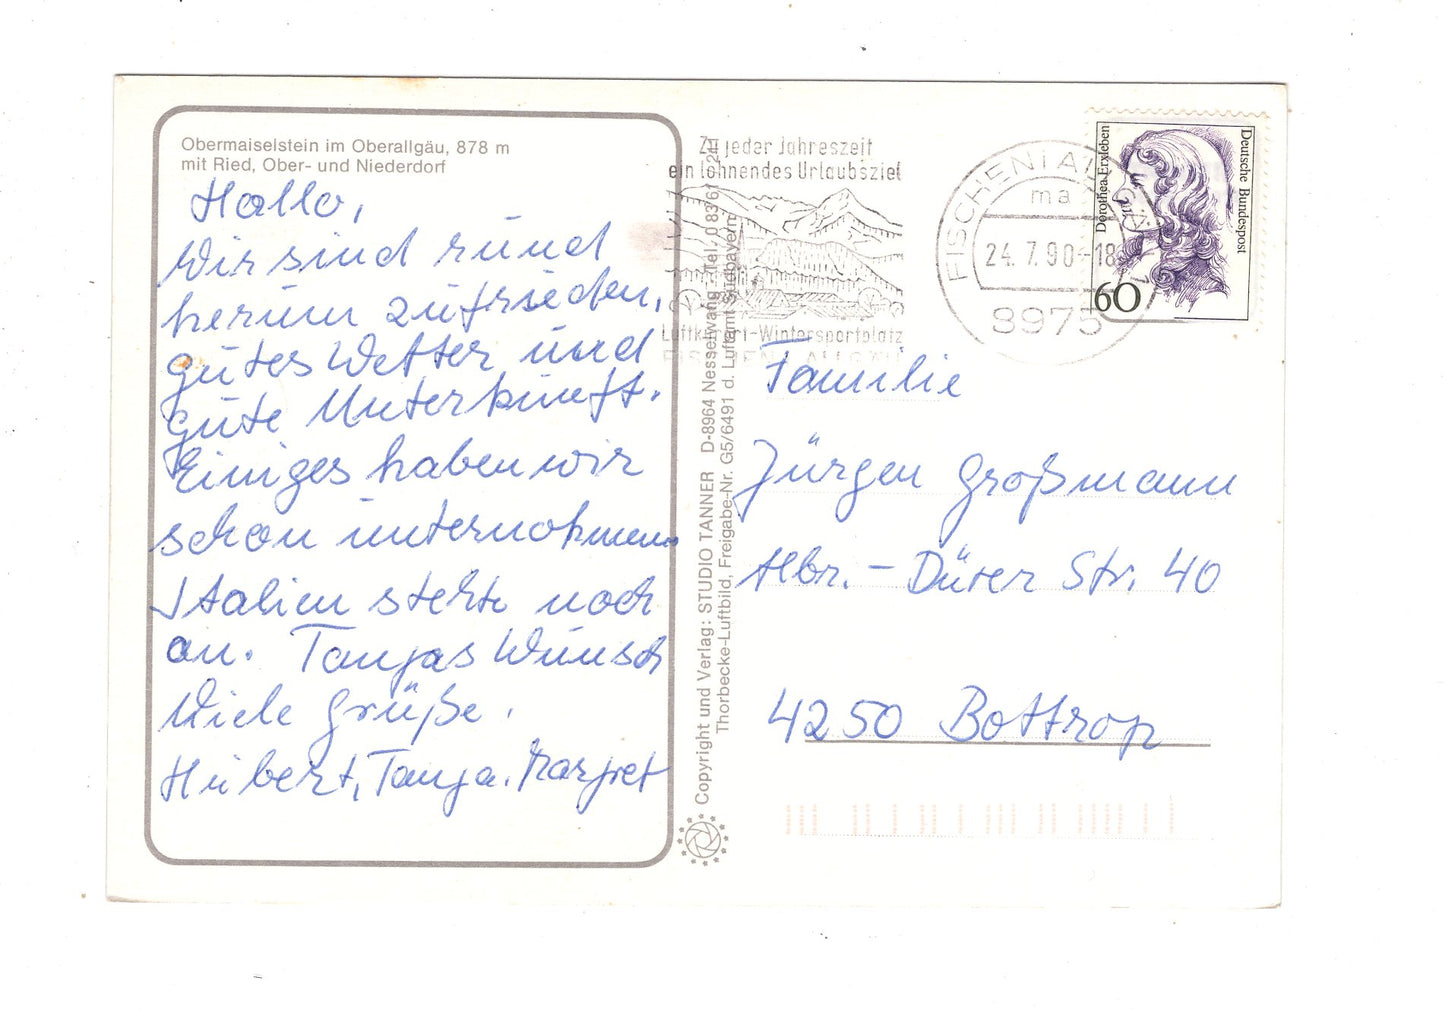 Obermaiselstein im Oberallgäu, 878 m
mit Ried, Ober- und Niederdorf
Hallo,
Wir sind rund
herum zufrieden,
gutes Wetter und
gute Unterkunft.
Einiges haben wir
schon unternohmen.
Italien steht noch
an. Tanjas Wunsch
Viele Grüße.
Hubert, Tanja. Margret
Copyright und Verlag: STUDIO TANNER D-8964 Nesselwang Tel. 0 83 61
Thorbecke-Luftbild, Freigabe-Nr. G5/6491 d. Luftamt Südbayern
Zu jeder Jahreszeit
ein lohnendes Urlaubsziel
Luftkurort-Wintersportplatz
FISCHEN I ALLGÄU
FISCHEN I ALLGÄU
ma
24.7.90-18
8975
Dorothea Erxleben
Deutsche Bundespost
60
Familie
Jürgen Großmann
Albr.-Dürer Str. 40
4250 Bottrop